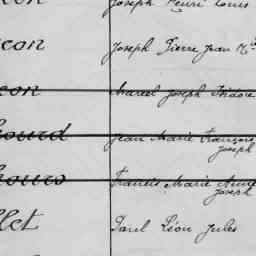 Joseph Henri Louis
con Joseph Pierre Jean M
con Marcel Joseph Isidore
hourd Jean Marie François
Joseph
hours Francis Marie Aimé
Joseph
llet Paul Léon Jules